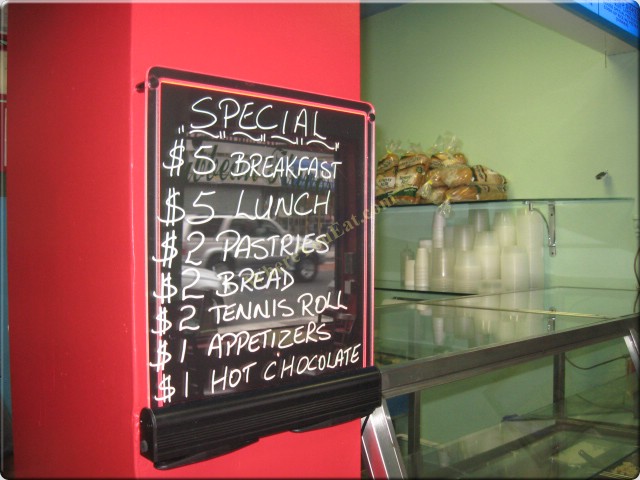 SPECIAL
$5 BREAKFAST
$5 LUNCH
$2 PASTRIES
$2 BREAD
$2 TENNIS ROLL
$1 APPETIZERS
$1 HOT CHOCOLATE